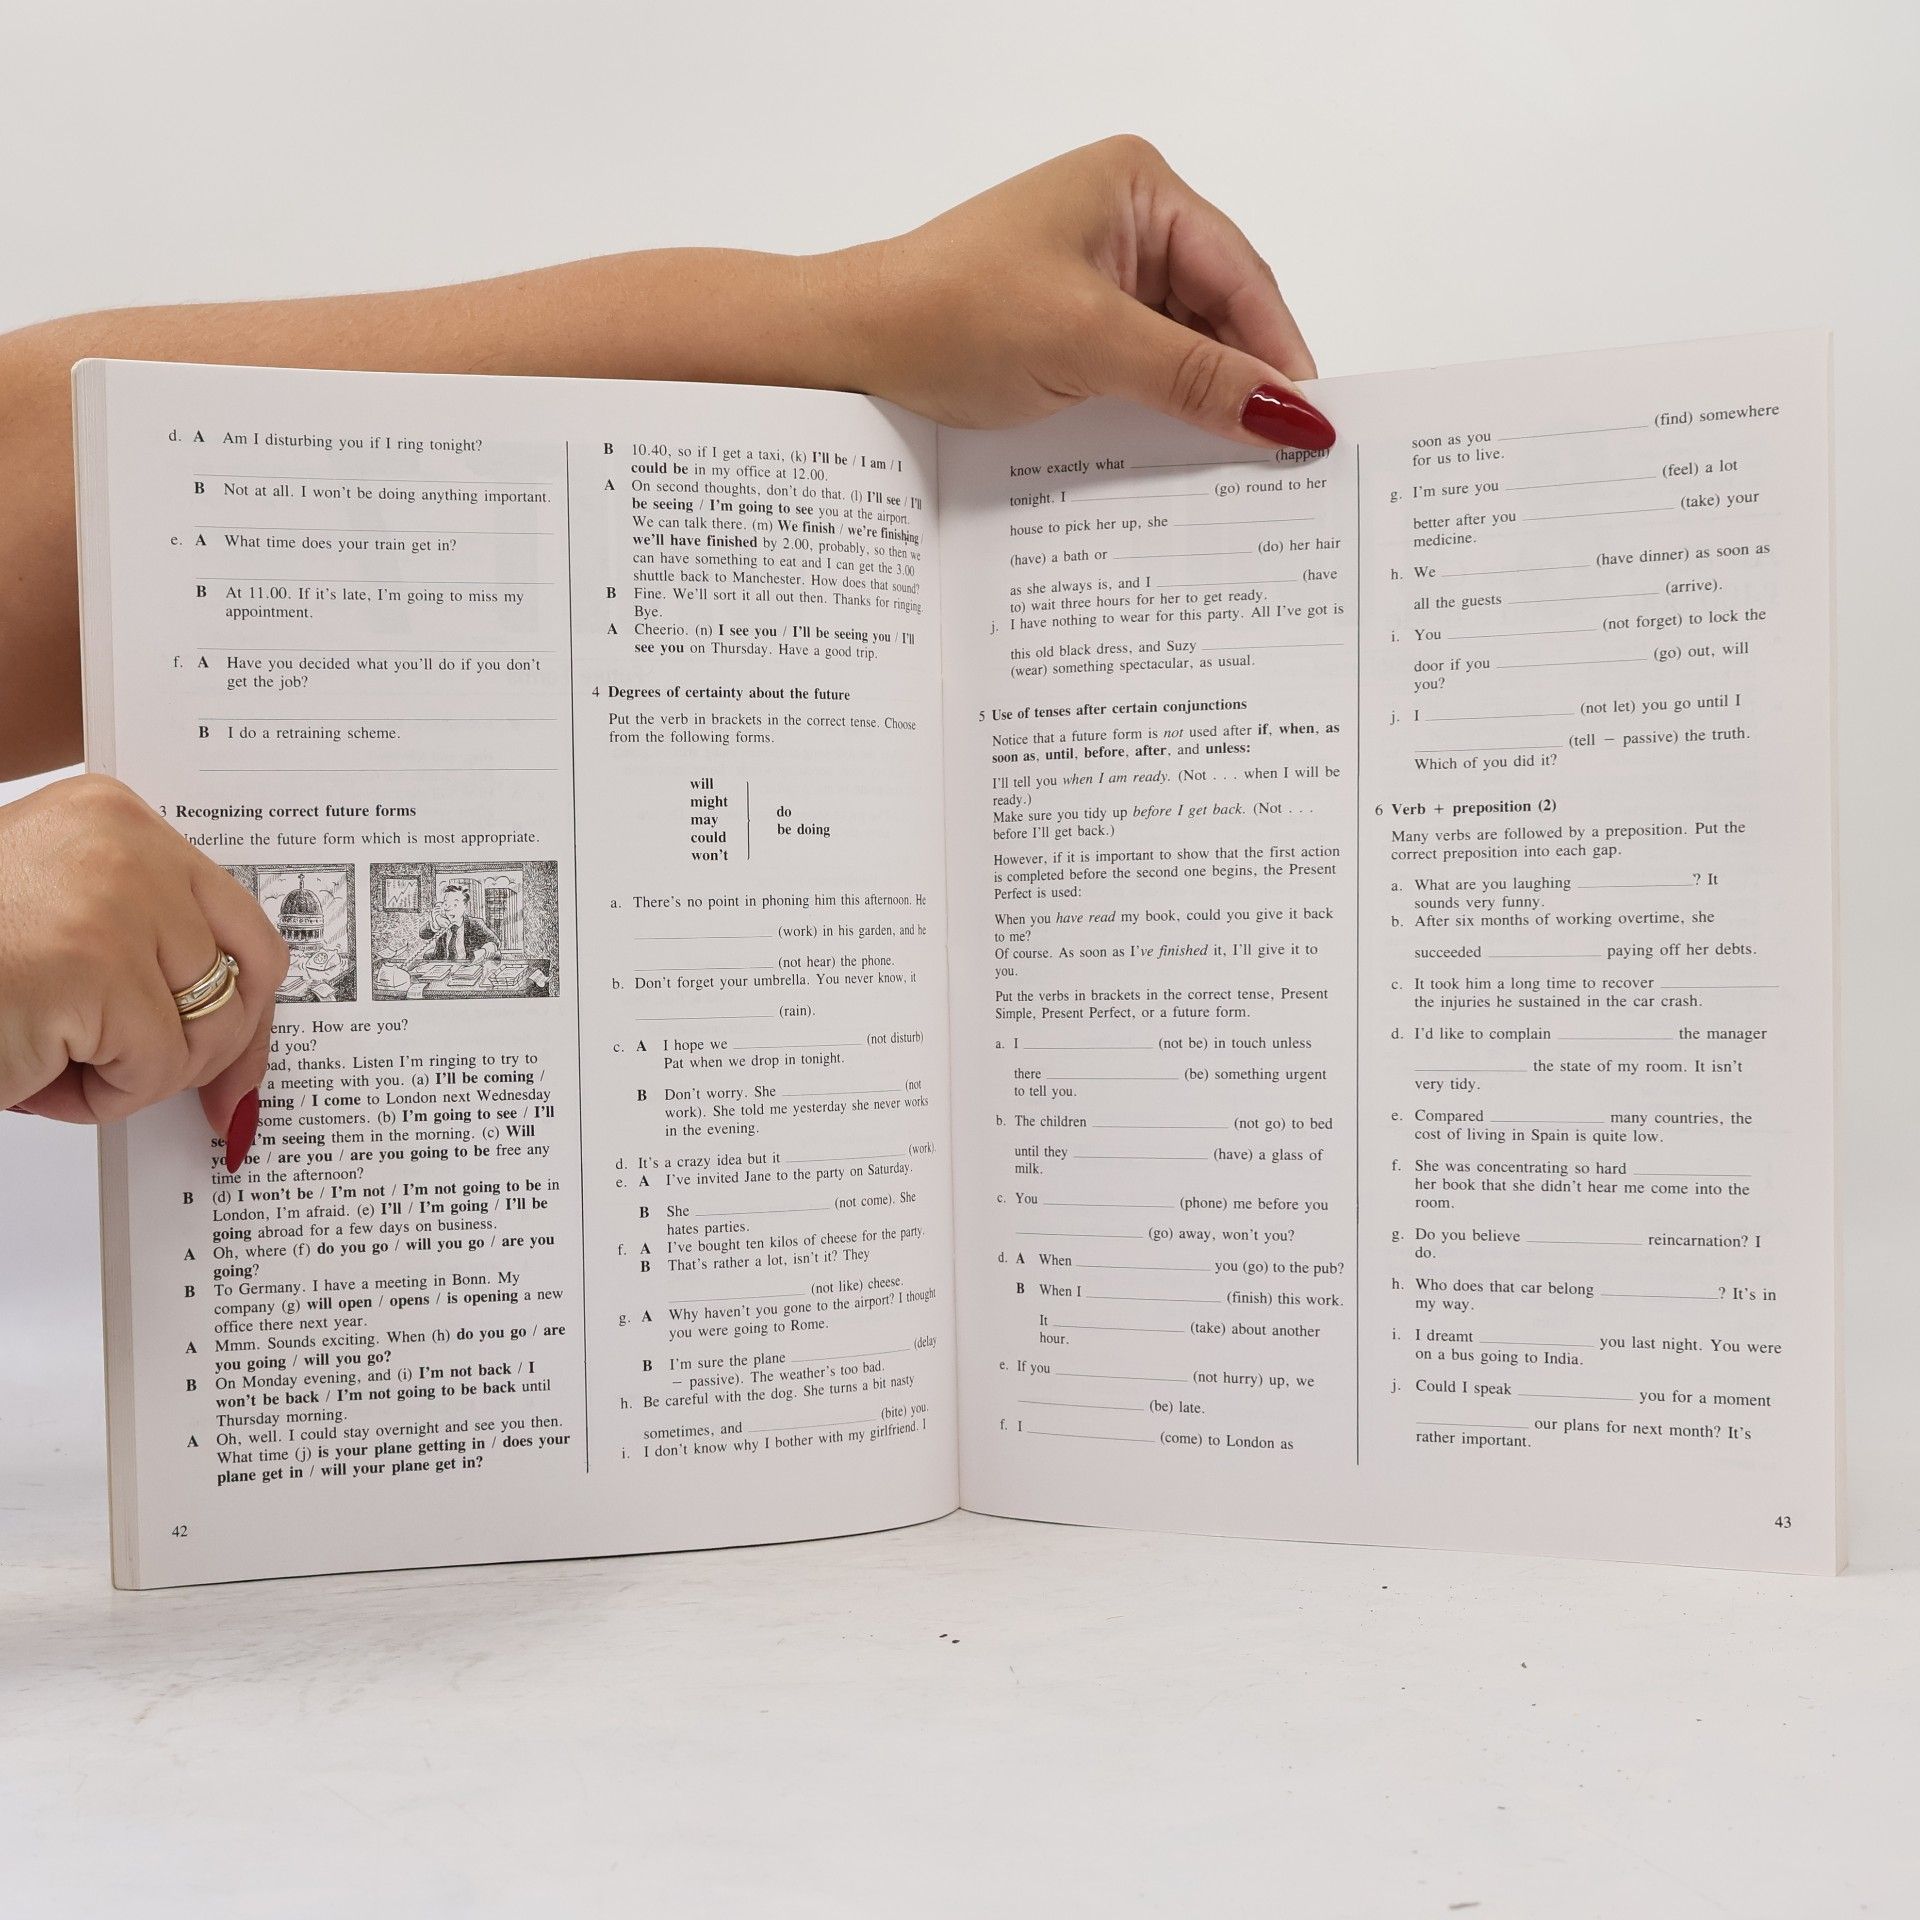 d. A Am I disturbing you if I ring tonight?
B Not at all. I won't be doing anything important.
e. A What time does your train get in?
B At 11.00. If it's late, I'm going to miss my
appointment.
f. A Have you decided what you'll do if you don't
get the job?
B I do a retraining scheme.
3 Recognizing correct future forms
Underline the future form which is most appropriate.
enry. How are you?
d you?
bad, thanks. Listen I'm ringing to try to
a meeting with you. (a) I'll be coming /
ming / I come to London next Wednesday
some customers. (b) I'm going to see / I'll
se I'm seeing them in the morning. (c) Will
yo be / are you / are you going to be free any
time in the afternoon?
B (d) I won't be / I'm not / I'm not going to be in
London, I'm afraid. (e) I'll / I'm going / I'll be
going abroad for a few days on business.
A Oh, where (f) do you go / will you go / are you
going?
B To Germany. I have a meeting in Bonn. My
company (g) will open / opens / is opening a new
office there next year.
A Mmm. Sounds exciting. When (h) do you go / are
you going / will you go?
B On Monday evening, and (i) I'm not back / I
won't be back / I'm not going to be back until
Thursday morning.
A Oh, well. I could stay overnight and see you then.
What time (j) is your plane getting in / does your
plane get in / will your plane get in?
42
B 10.40, so if I get a taxi, (k) I'll be / I am / I
could be in my office at 12.00.
A On second thoughts, don't do that. (l) I'll see / I'll
be seeing / I'm going to see you at the airport.
We can talk there. (m) We finish / we're finishing /
we'll have finished by 2.00, probably, so then we
can have something to eat and I can get the 3.00
shuttle back to Manchester. How does that sound?
B Fine. We'll sort it all out then. Thanks for ringing.
Bye.
A Cheerio. (n) I see you / I'll be seeing you / I'll
see you on Thursday. Have a good trip.
4 Degrees of certainty about the future
Put the verb in brackets in the correct tense. Choose
from the following forms.
will
might
may
could
won't
do
be doing
a. There's no point in phoning him this afternoon. He
____ (work) in his garden, and he
____ (not hear) the phone.
b. Don't forget your umbrella. You never know, it
____ (rain).
c. A I hope we ____ (not disturb)
Pat when we drop in tonight.
B Don't worry. She ____ (not
work). She told me yesterday she never works
in the evening.
d. It's a crazy idea but it ____ (work).
e. A I've invited Jane to the party on Saturday.
B She ____ (not come). She
hates parties.
f. A I've bought ten kilos of cheese for the party.
B That's rather a lot, isn't it? They
____ (not like) cheese.
g. A Why haven't you gone to the airport? I thought
you were going to Rome.
B I'm sure the plane ____ (delay
– passive). The weather's too bad.
h. Be careful with the dog. She turns a bit nasty
sometimes, and ____ (bite) you.
i. I don't know why I bother with my girlfriend. I
know exactly what ____ (happen)
tonight. I ____ (go) round to her
house to pick her up, she ____
(have) a bath or ____ (do) her hair
as she always is, and I ____ (have
to) wait three hours for her to get ready.
j. I have nothing to wear for this party. All I've got is
this old black dress, and Suzy ____
(wear) something spectacular, as usual.
5 Use of tenses after certain conjunctions
Notice that a future form is not used after if, when, as
soon as, until, before, after, and unless:
I'll tell you when I am ready. (Not . . . when I will be
ready.)
Make sure you tidy up before I get back. (Not . . .
before I'll get back.)
However, if it is important to show that the first action
is completed before the second one begins, the Present
Perfect is used:
When you have read my book, could you give it back
to me?
Of course. As soon as I've finished it, I'll give it to
you.
Put the verbs in brackets in the correct tense, Present
Simple, Present Perfect, or a future form.
a. I ____ (not be) in touch unless
there ____ (be) something urgent
to tell you.
b. The children ____ (not go) to bed
until they ____ (have) a glass of
milk.
c. You ____ (phone) me before you
____ (go) away, won't you?
d. A When ____ you (go) to the pub?
B When I ____ (finish) this work.
It ____ (take) about another
hour.
e. If you ____ (not hurry) up, we
____ (be) late.
f. I ____ (come) to London as
soon as you ____ (find) somewhere
for us to live.
g. I'm sure you ____ (feel) a lot
better after you ____ (take) your
medicine.
h. We ____ (have dinner) as soon as
all the guests ____ (arrive).
i. You ____ (not forget) to lock the
door if you ____ (go) out, will
you?
j. I ____ (not let) you go until I
____ (tell – passive) the truth.
Which of you did it?
6 Verb + preposition (2)
Many verbs are followed by a preposition. Put the
correct preposition into each gap.
a. What are you laughing ____? It
sounds very funny.
b. After six months of working overtime, she
succeeded ____ paying off her debts.
c. It took him a long time to recover ____
the injuries he sustained in the car crash.
d. I'd like to complain ____ the manager
____ the state of my room. It isn't
very tidy.
e. Compared ____ many countries, the
cost of living in Spain is quite low.
f. She was concentrating so hard ____
her book that she didn't hear me come into the
room.
g. Do you believe ____ reincarnation? I
do.
h. Who does that car belong ____? It's in
my way.
i. I dreamt ____ you last night. You were
on a bus going to India.
j. Could I speak ____ you for a moment
____ our plans for next month? It's
rather important.
43